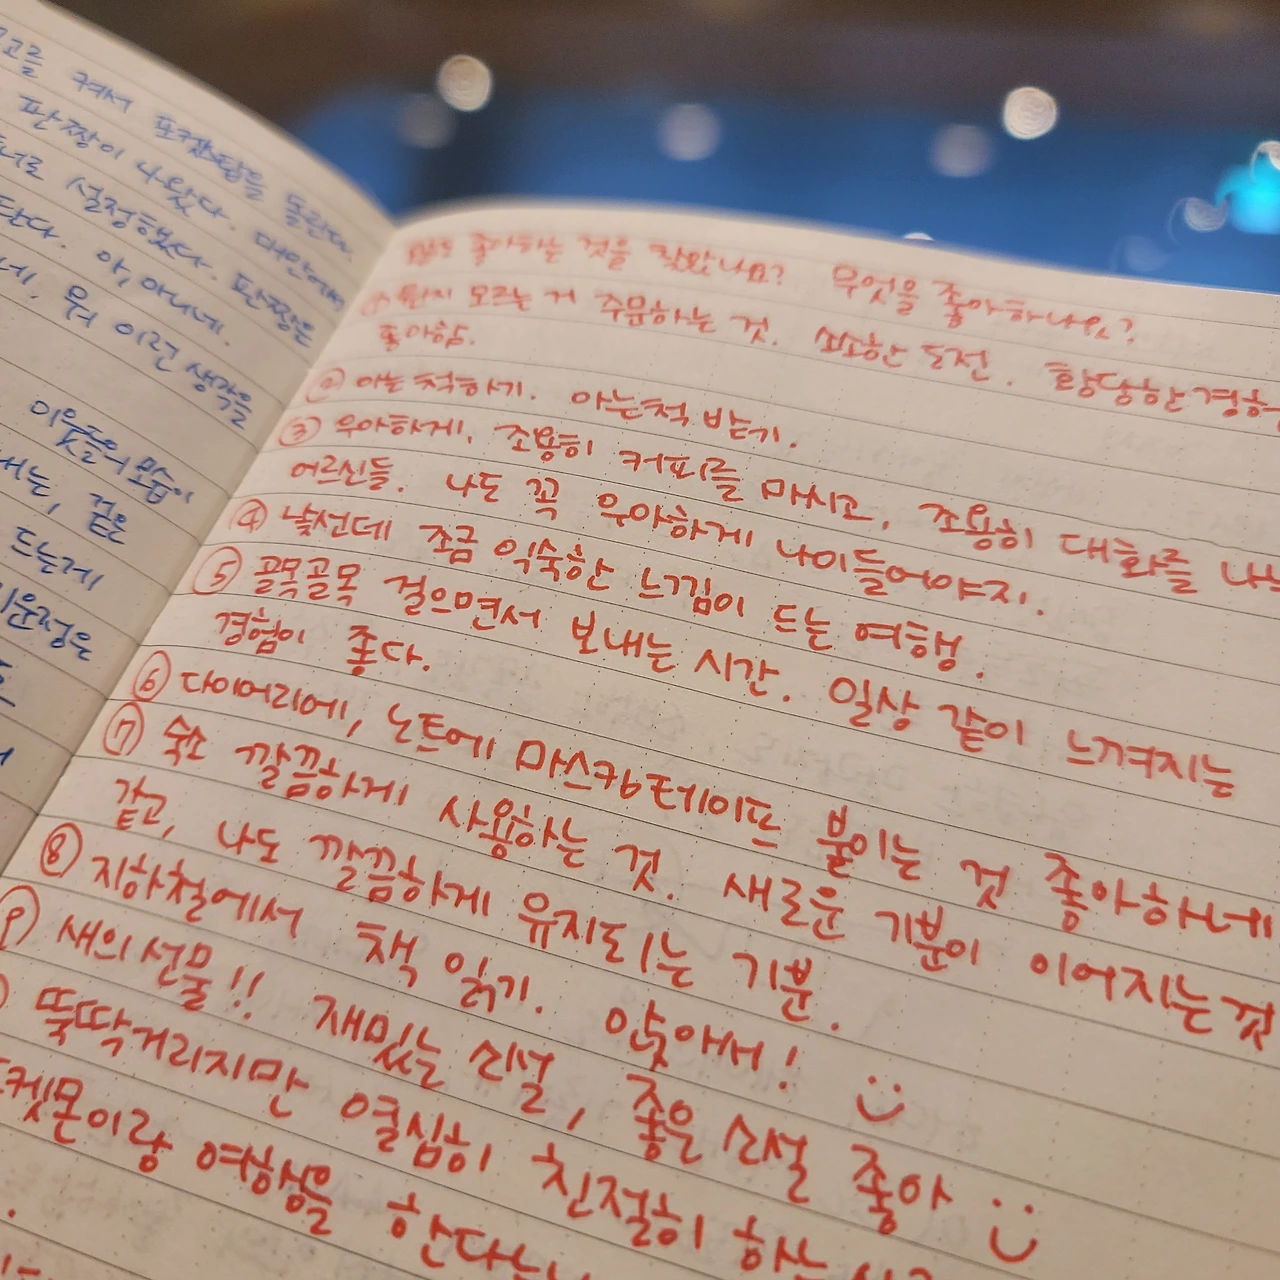 켜서 포켓스탑을 돌린다.
판짱이 나왔다. 대만에서
설정했다. 판짱은
단다. 아, 아니네.
네. 뭐 이런 생각을
이웃들의 모습이
내는, 겉은
드는게
좋아하는 것을 찾았나요? 무엇을 좋아하나요?
① 뭔지 모르는 거 주문하는 것. 소소한 도전. 황당한 경험
좋아함.
② 아는 척하기. 아는척 받기.
③ 우아하게, 조용히 커피를 마시고, 조용히 대화를 나누
어르신들. 나도 꼭 우아하게 나이들어야지.
④ 낯선데 조금 익숙한 느낌이 드는 여행.
⑤ 골목골목 걸으면서 보내는 시간. 일상 같이 느껴지는
경험이 좋다.
⑥ 다이어리에, 노트에 마스킹테이프 붙이는 것 좋아하네
⑦ 숙소 깔끔하게 사용하는 것. 새로운 기분이 이어지는것
같고, 나도 깔끔하게 유지되는 기분.
⑧ 지하철에서 책 읽기. 앉아서! :)
⑨ 새의선물!! 재밌는 소설, 좋은 소설 좋아 :)
뚝딱거리지만 열심히 친절히 하는
포켓몬이랑 여행을 한다는